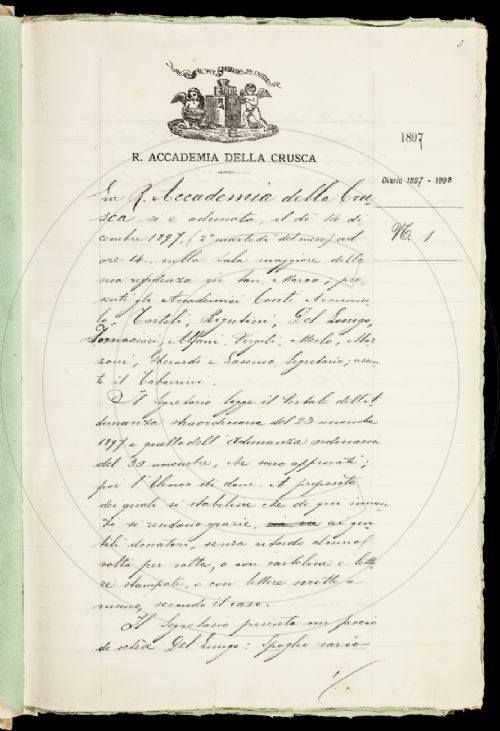 3
R. ACCADEMIA DELLA CRUSCA
1897
Diario 1897 - 1898
N. 1
La R. Accademia della Cru-
sca si è adunata, il dì 14 de
cembre 1897, (2° martedì del mese) ad
ore 14, nella sala maggiore della
sua residenza in San Marco; pre-
senti gli Accademici Conti
Tortoli, Rigutini, Del Lungo,
Tornaciari, Alfani, Merlo, Maz
zoni, Gherardi e Segretario; assen
te il Tabarrini.
Il Segretario legge il verbale dell'A
dunanza straordinaria del 23 novembre
1897 e quello dell'Adunanza ordinaria
del 30 novembre, che sono approvati;
poi l'elenco de' doni. A proposito
dei quali si stabilisce che di qui innan
zi si rendano grazie, ai gen
tili donatori, senza ritardo alcuno,
volta per volta, o con cartoline e lette
re stampate, o con lettere scritte a
mano, secondo il caso.
Il Segretario presenta un pacco
di schede Del Lungo: Spoglio vario